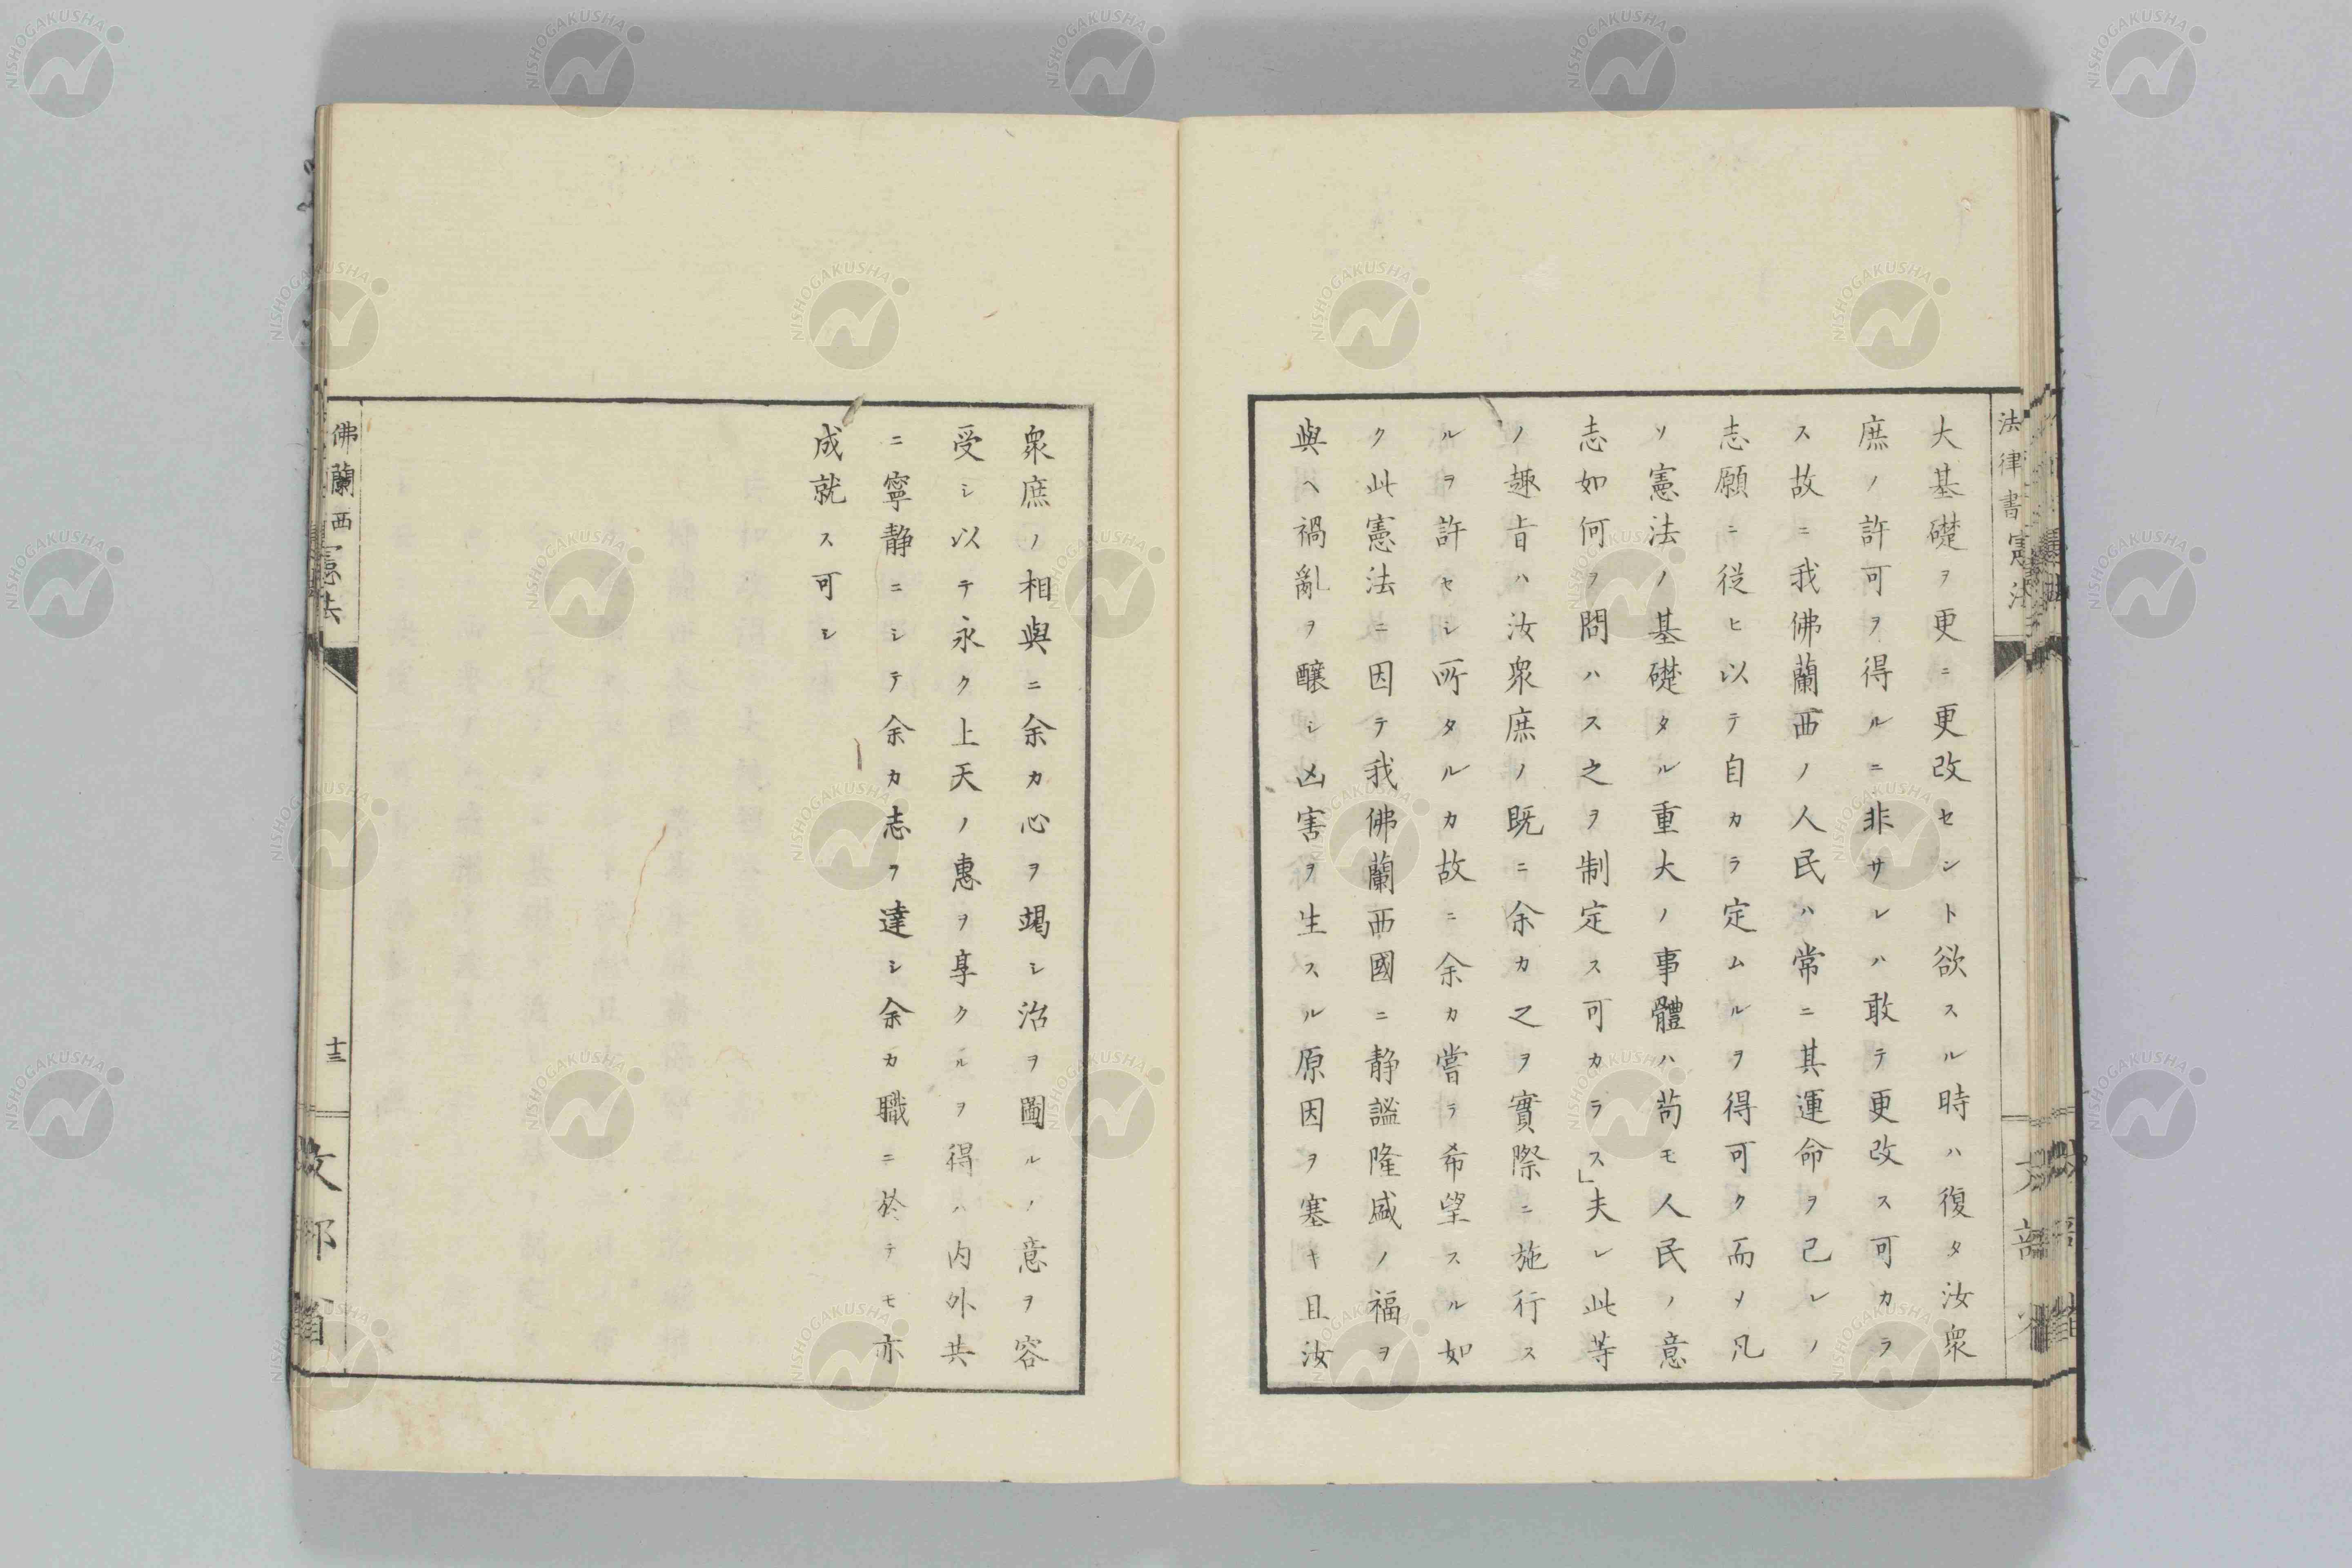 大基礎ヲ更ニ更改セント欲スル時ハ復タ汝衆
庶ノ許可ヲ得ルニ非サレハ敢テ更改ス可カラ
ス故ニ我佛蘭西ノ人民ハ常ニ其運命ヲ己レノ
志願ニ従ヒ以テ自カラ定ムルヲ得可ク而メ凡
ソ憲法ノ基礎タル重大ノ事體ハ苟モ人民ノ意
志如何ヲ問ハス之ヲ制定ス可カラス」夫レ此等
ノ趣旨ハ汝衆庶ノ既ニ余カ之ヲ實際ニ施行ス
ルヲ許セシ所タルカ故ニ余カ嘗ラ希望スル如
ク此憲法ニ因テ我佛蘭西國ニ静謐隆盛ノ福ヲ
與ヘ禍亂ヲ醸シ凶害ヲ生スル原因ヲ塞キ且汝
衆庶ノ相與ニ余カ心ヲ竭シ治ヲ圖ルノ意ヲ容
受シ以テ永ク上天ノ惠ヲ享クルヲ得ハ内外共
ニ寧静ニシテ余カ志ヲ達シ余カ職ニ於テモ亦
成就ス可シ
法律書憲法
佛蘭西憲法
十三
文部省
NISHOGAKUSHA